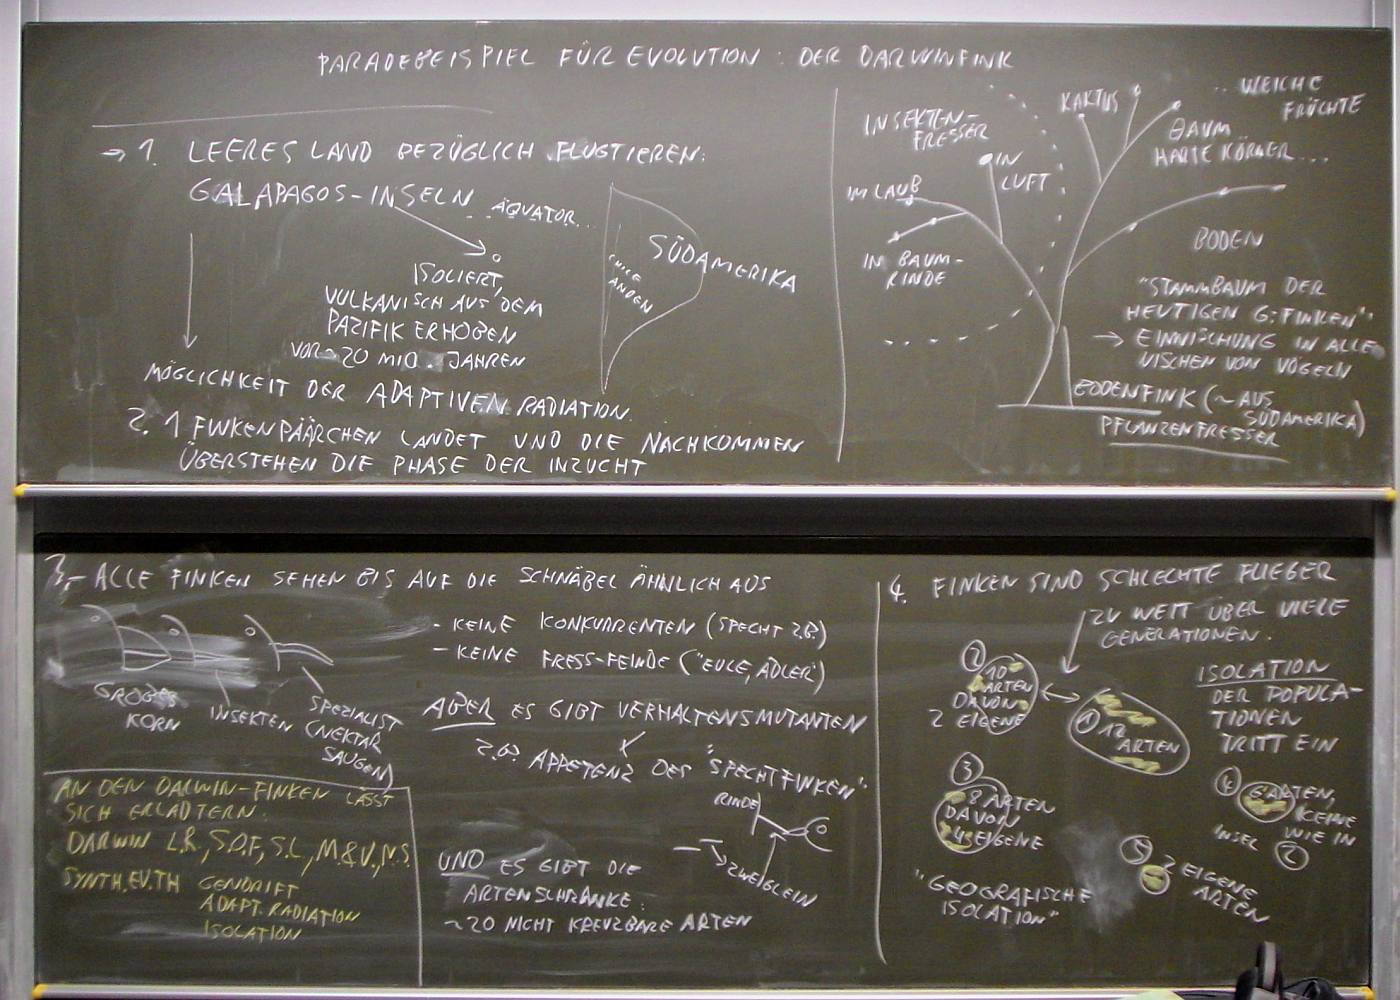 PARADEBEISPIEL FÜR EVOLUTION: DER DARWINFINK
→ 1. LEERES LAND BEZÜGLICH FLUGTIEREN:
GALAPAGOS-INSELN ÄQUATOR...
ISOLIERT,
VULKANISCH AUS DEM
PAZIFIK ERHOBEN
VOR ~20 MIO. JAHREN
CHILE
ANDEN
SÜDAMERIKA
MÖGLICHKEIT DER ADAPTIVEN RADIATION.
2. 1 FINKENPÄÄRCHEN LANDET UND DIE NACHKOMMEN
ÜBERSTEHEN DIE PHASE DER INZUCHT
INSEKTEN-
FRESSER
IM LAUB
IN BAUM-
RINDE
IN
LUFT
KAKTUS
.. WEICHE
FRÜCHTE
BAUM
HARTE KÖRNER...
BODEN
"STAMMBAUM DER
HEUTIGEN G.FINKEN".
→ EINNISCHUNG IN ALLE
NISCHEN VON VÖGELN
BODENFINK (~ AUS
SÜDAMERIKA)
PFLANZENFRESSER
3. - ALLE FINKEN SEHEN BIS AUF DIE SCHNÄBEL ÄHNLICH AUS
GROBES
KORN
INSEKTEN
SPEZIALIST
(NEKTAR
SAUGEN)
- KEINE KONKURRENTEN (SPECHT Z.B.)
- KEINE FRESS-FEINDE ("EULE, ADLER")
ABER ES GIBT VERHALTENSMUTANTEN
Z.B. APPETENZ DES "SPECHTFINKEN".
RINDE
ZWEIGLEIN
UND ES GIBT DIE
ARTENSCHRANKE:
~20 NICHT KREUZBARE ARTEN
AN DEN DARWIN-FINKEN LÄSST
SICH ERLÄUTERN:
DARWIN L.R., S.O.F., S.L., M.&V., N.S.
SYNTH.EV.TH GENDRIFT
ADAPT. RADIATION
ISOLATION
4. FINKEN SIND SCHLECHTE FLIEGER
ZU WEIT ÜBER VIELE
GENERATIONEN.
ISOLATION
DER POPULA-
TIONEN
TRITT EIN
② 10
ARTEN
DAVON
2 EIGENE
① 12
ARTEN
③
8 ARTEN
DAVON
4 EIGENE
④ 6 ARTEN,
KEINE
WIE IN
INSEL ②
⑤ 2 EIGENE
ARTEN
"GEOGRAFISCHE
ISOLATION"